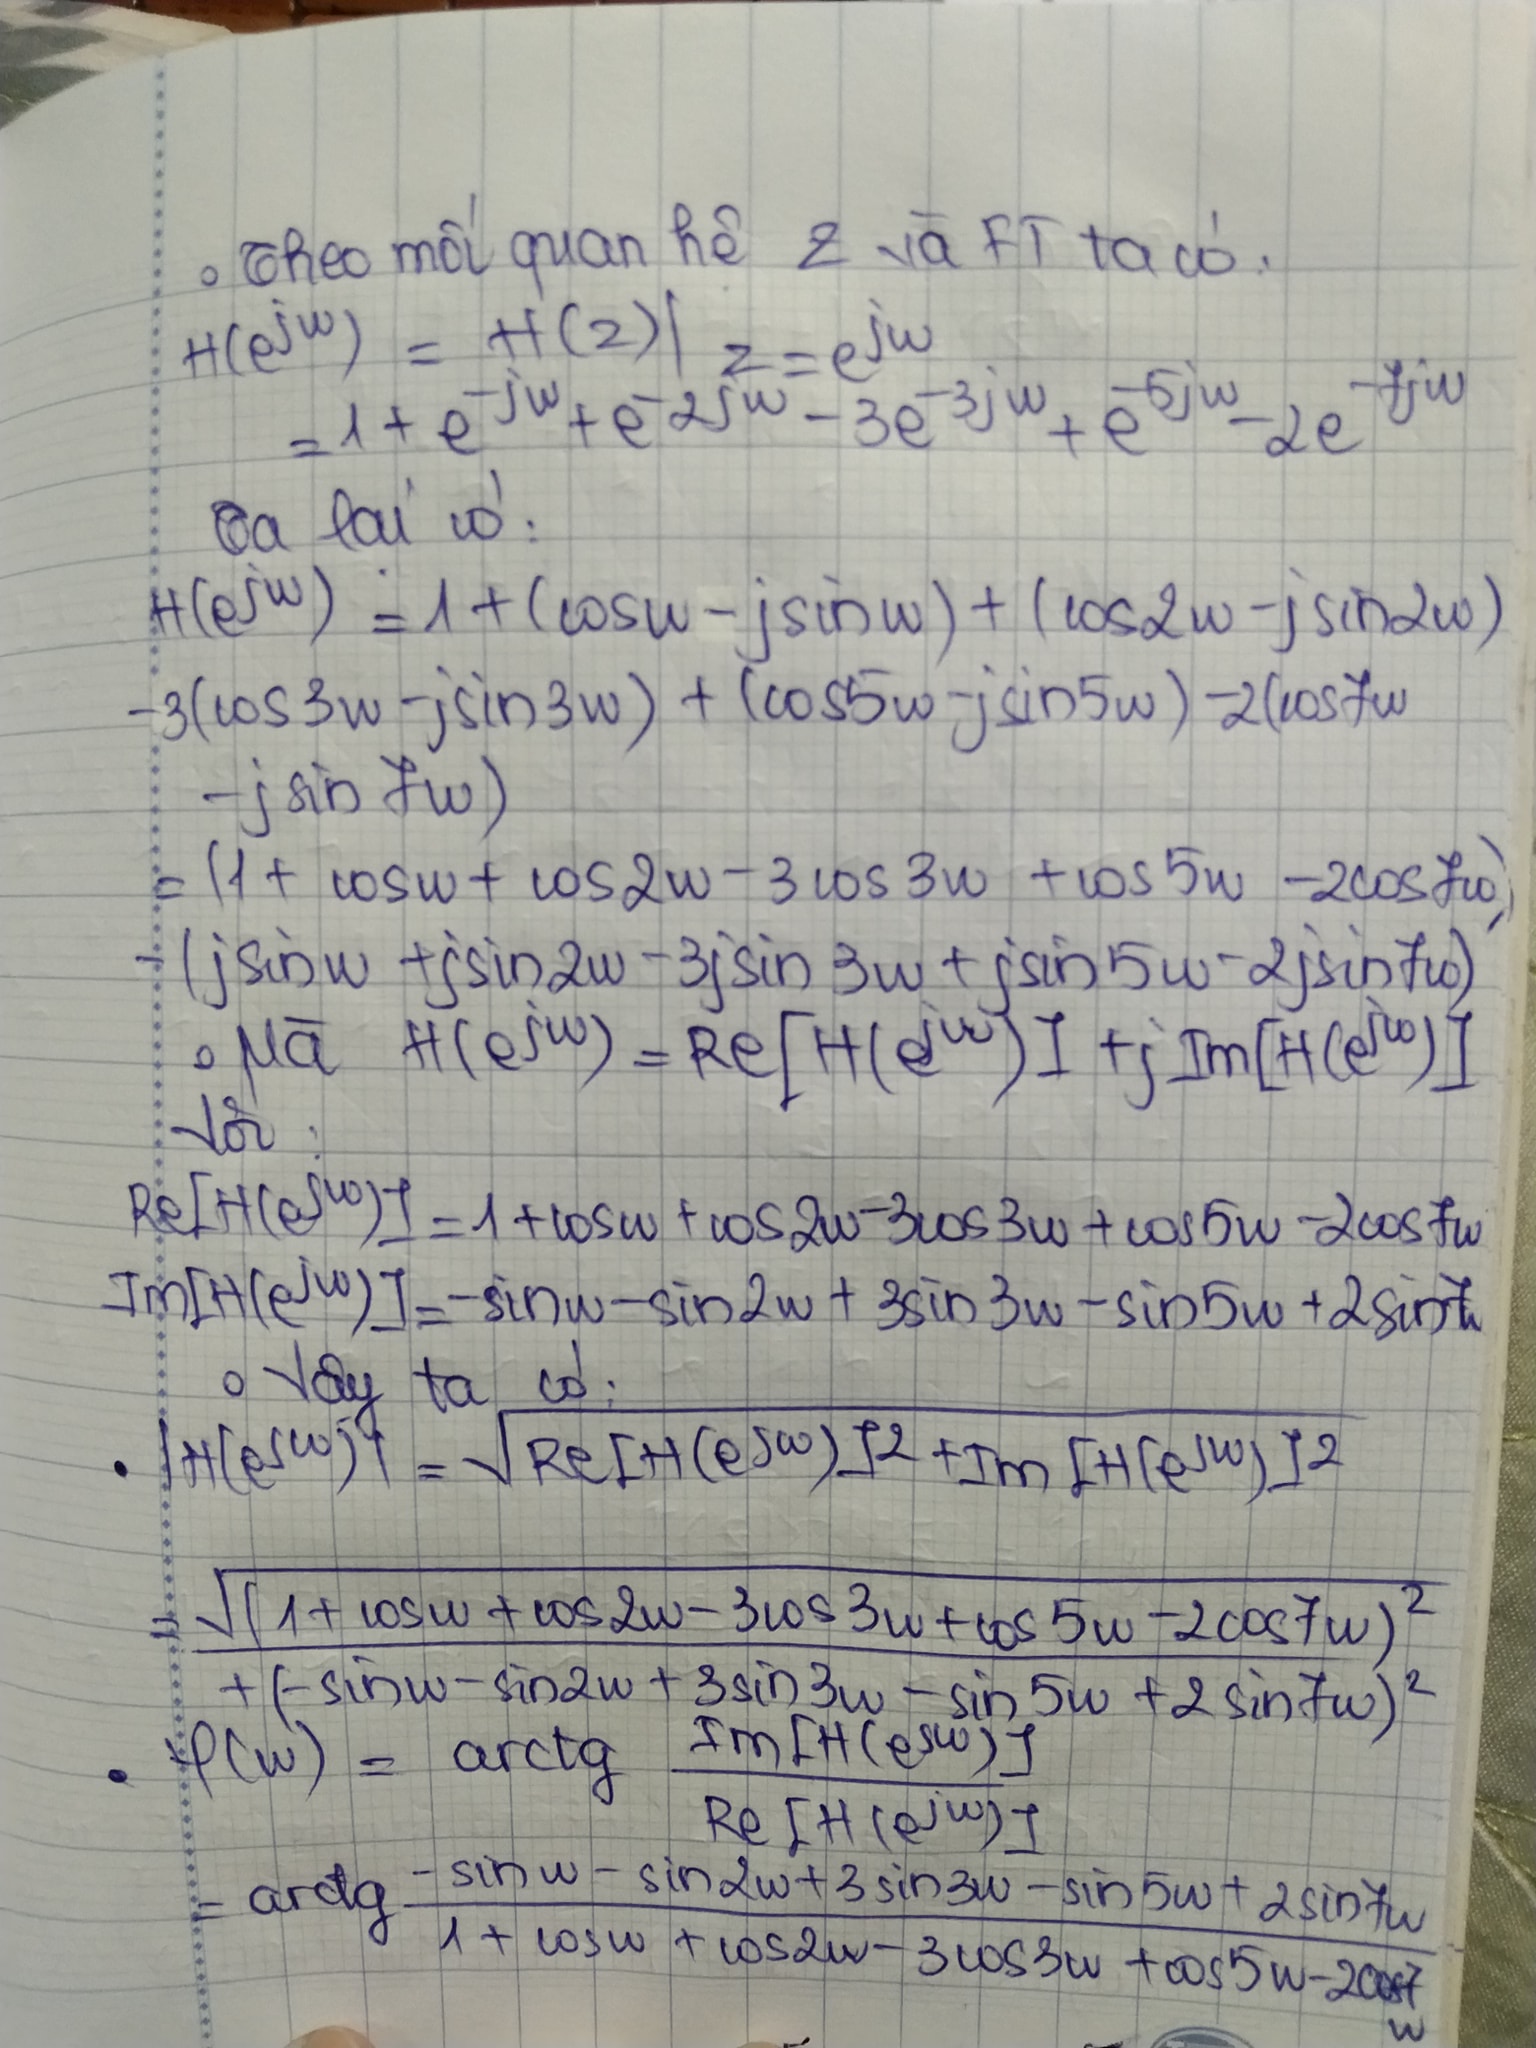 ∘ Theo mối quan hệ Z và FT ta có:
H(e^{jw}) = H(z)|_{z=e^{jw}}
= 1 + e^{-jw} + e^{-2jw} - 3e^{-3jw} + e^{-5jw} - 2e^{-7jw}
Ta lại có:
H(e^{jw}) = 1 + (cosw - jsinw) + (cos2w - jsin2w)
-3(cos3w - jsin3w) + (cos5w - jsin5w) - 2(cos7w
- jsin7w)
= (1 + cosw + cos2w - 3cos3w + cos5w - 2cos7w)
- (jsinw + jsin2w - 3jsin3w + jsin5w - 2jsin7w)
∘ Mà H(e^{jw}) = Re[H(e^{jw})] + jIm[H(e^{jw})]
Với:
Re[H(e^{jw})] = 1 + cosw + cos2w - 3cos3w + cos5w - 2cos7w
Im[H(e^{jw})] = -sinw - sin2w + 3sin3w - sin5w + 2sin7w
∘ Vậy ta có:
• |H(e^{jw})| = √(Re[H(e^{jw})]² + Im[H(e^{jw})]²)
= √(1 + cosw + cos2w - 3cos3w + cos5w - 2cos7w)²
+ (-sinw - sin2w + 3sin3w - sin5w + 2sin7w)²
• φ(w) = arctg Im[H(e^{jw})] / Re[H(e^{jw})]
= arctg (-sinw - sin2w + 3sin3w - sin5w + 2sin7w) / (1 + cosw + cos2w - 3cos3w + cos5w - 2cos7w)